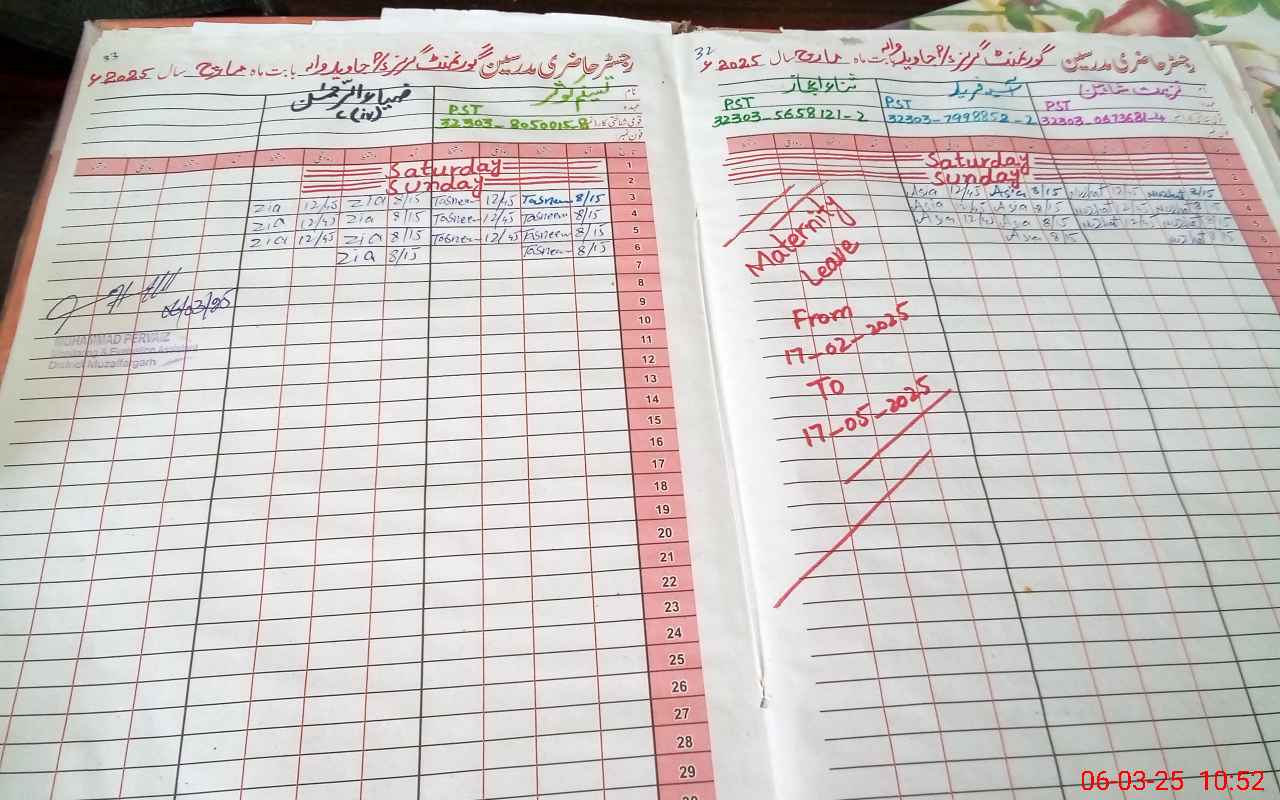 32
رجسٹر حاضری مدرسین گورنمنٹ گرلز P/S جاویداں والہ بابت ماہ مارچ سال 2025ء
نام
آسیہ فرید
ثناء اعجاز
عہدہ
PST
PST
PST
32303-0673681-4
32303-7998852-2
32303-5658121-2
1 Saturday
2 Sunday
3 Nuzhat 8/15 Nuzhat 12/45 Asia 8/15 Asia 12/45
4 Nuzhat 8/15 Nuzhat 12/45 Asia 8/15 Asia 12/45
5 Nuzhat 8/15 Nuzhat 12/45 Asia 8/15 Asia 12/45
6 Nuzhat 8/15 Asia 8/15
7
Maternity
Leave
From
17-02-2025
To
17-05-2025
33
رجسٹر حاضری مدرسین گورنمنٹ گرلز P/S بابت ماہ مارچ سال 2025ء
نام
تسنیم کوثر
ضیاء الرحمٰن
عہدہ
PST
C(iv)
قومی شناختی کارڈ نمبر
32303-8050015-8
فون نمبر
تاریخ
1 Saturday
2 Sunday
3 Tasneem 8/15 Tasneem 12/45 Zia 8/15 Zia 12/45
4 Tasneem 8/15 Tasneem 12/45 Zia 8/15 Zia 12/45
5 Tasneem 8/15 Tasneem 12/45 Zia 8/15 Zia 12/45
6 Tasneem 8/15 Zia 8/15
7
8
9
10
11
12
13
14
15
16
17
18
19
20
21
22
23
24
25
26
27
28
29
06/03/25
MUHAMMAD PERVAIZ
Monitoring & Evaluation Assistant
District Muzaffargarh
06-03-25 10:52